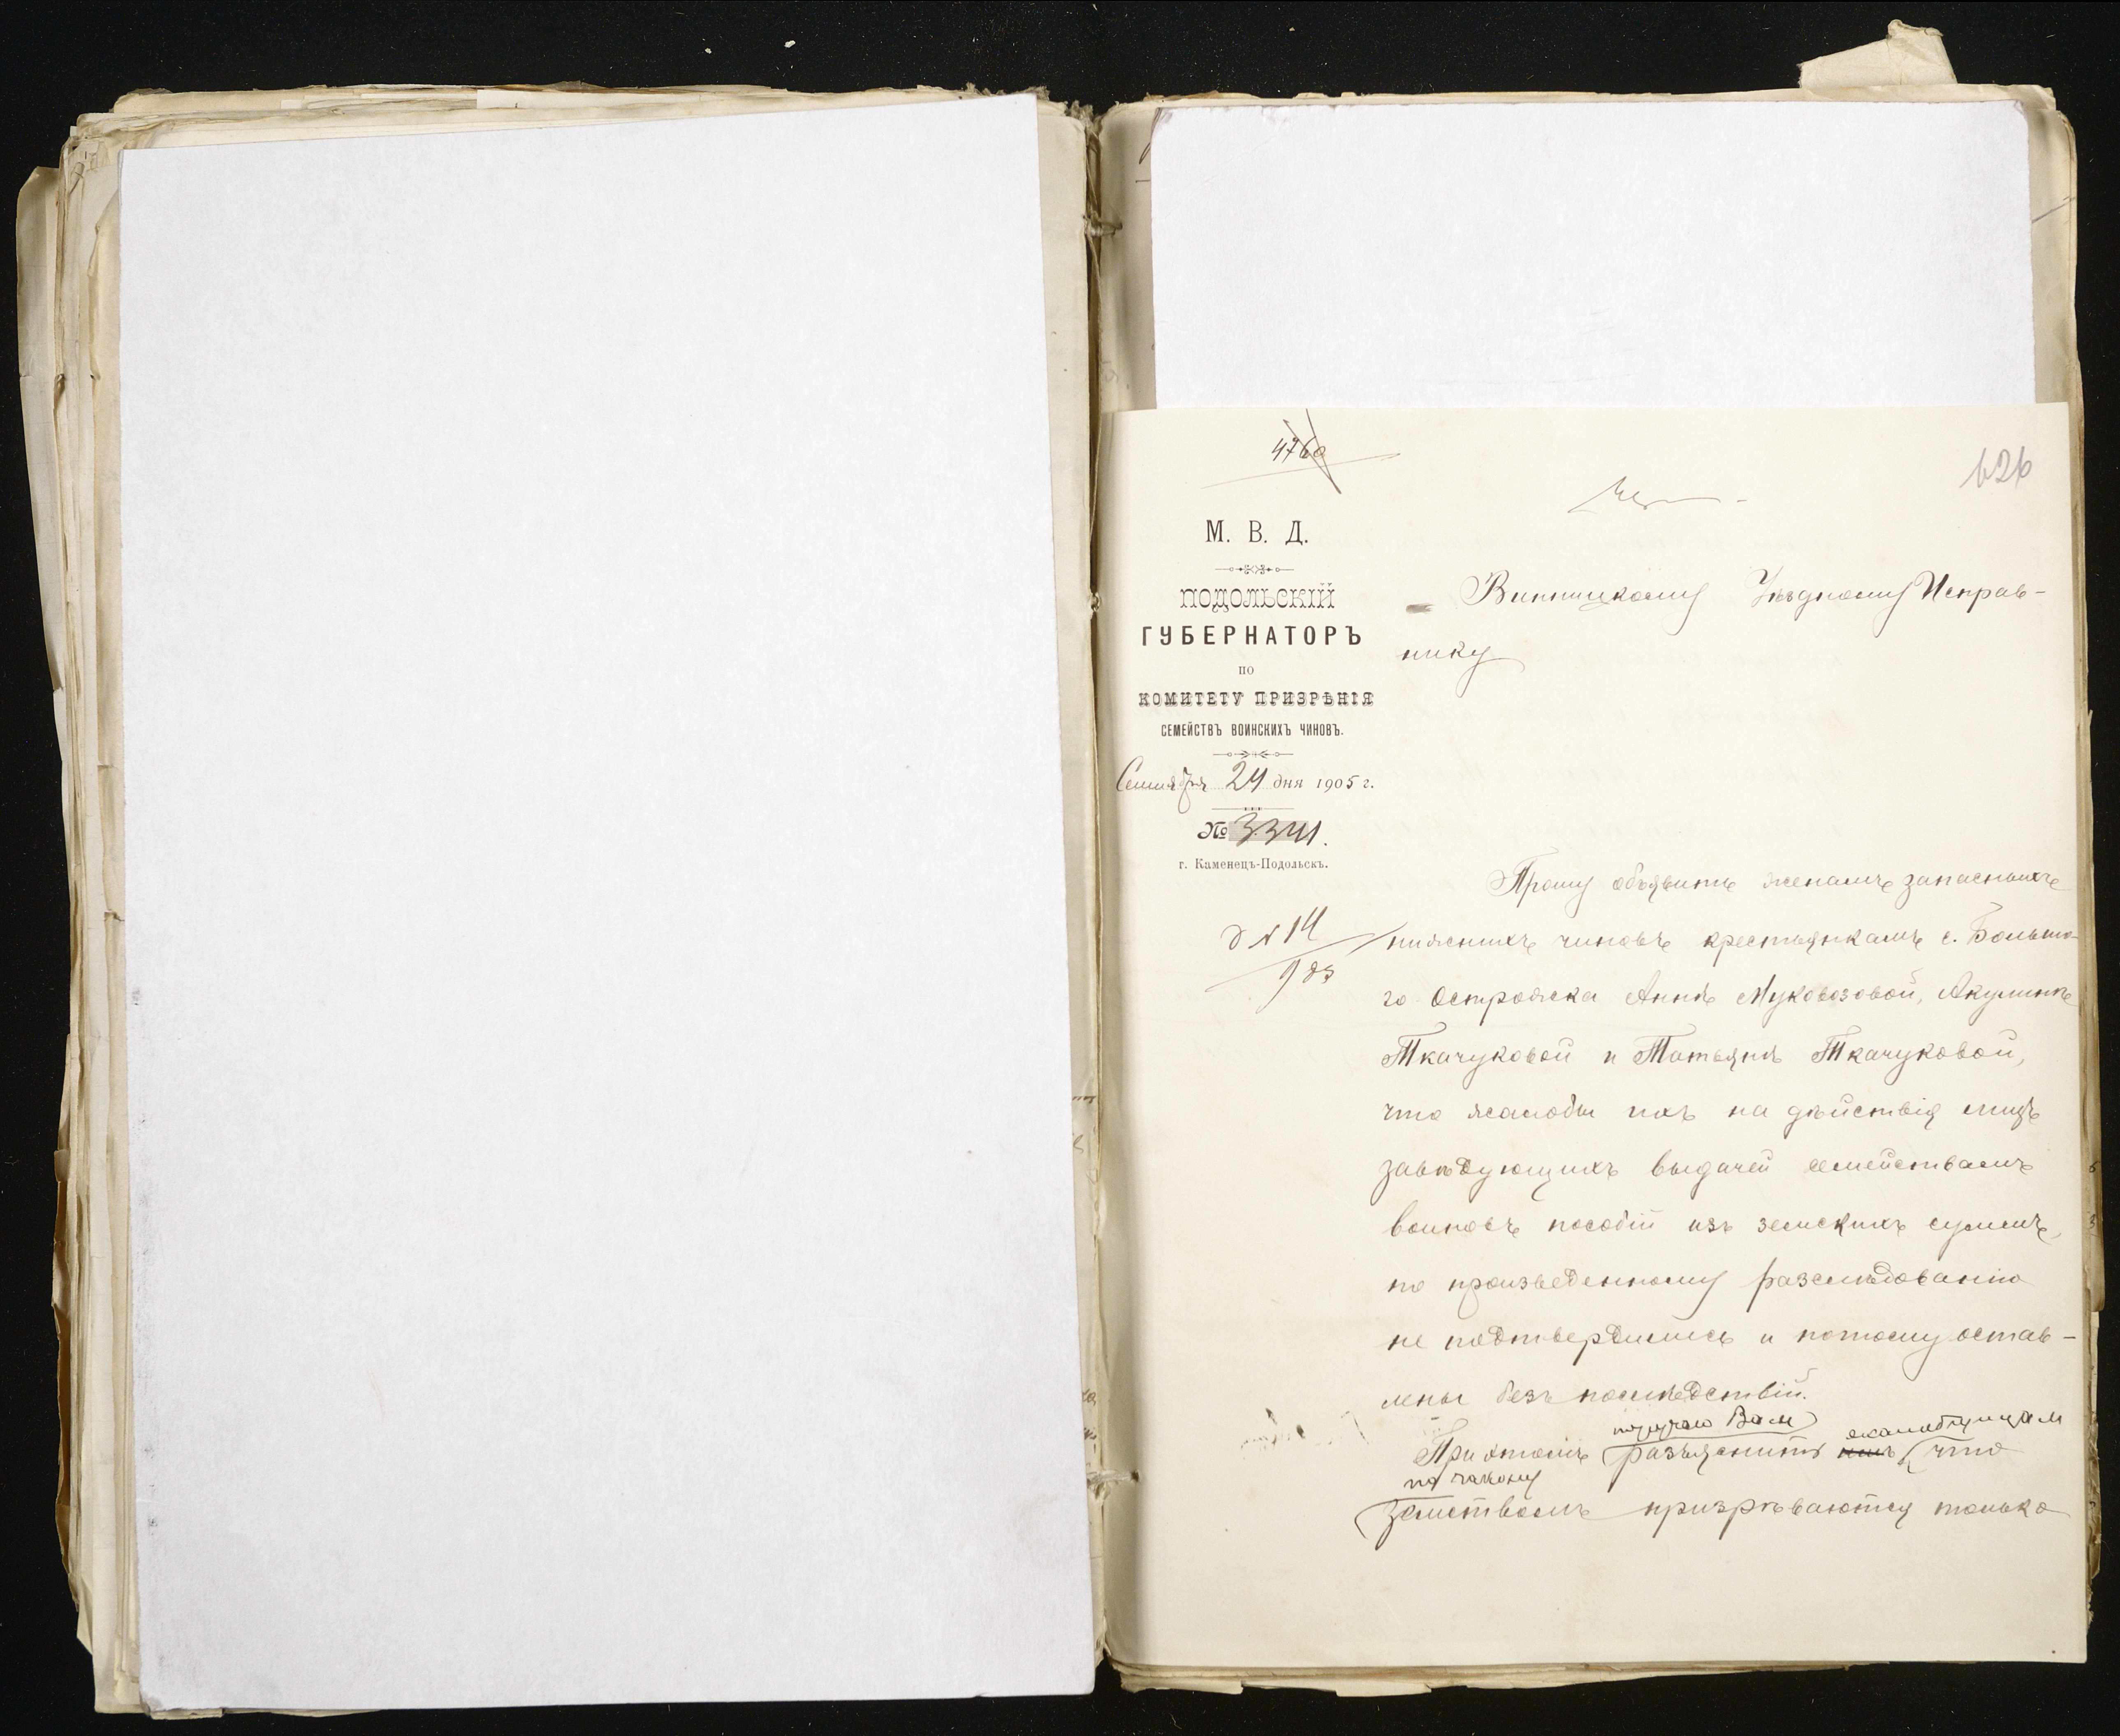 4760
626
М. В. Д.
ПОДОЛЬСКІЙ
ГУБЕРНАТОРЪ
ПО
КОМИТЕТУ ПРИЗРѢНІЯ
СЕМЕЙСТВЪ ВОИНСКИХЪ ЧИНОВЪ.
Сентября 24 дня 1905 г.
№ 3341.
г. Каменецъ-Подольскъ.
Винницкому Уѣздному Исправ-
нику
Прошу объявить женамъ запасныхъ
нижнихъ чиновъ крестьянкамъ с. Большо-
го Острожска Аннѣ Муковозовой, Акулинѣ
Ткачуковой и Татьянѣ Ткачуковой,
что жалобы ихъ на дѣйствія лицъ
завѣдующихъ выдачей семействамъ
воиновъ пособій изъ земскихъ суммъ,
по произведенному разслѣдованію
не подтвердились и потому остав-
лены безъ послѣдствій.
поручаю Вам жалобщицам
При этомъ разъяснить имъ что
по закону
земствомъ призрѣваются только